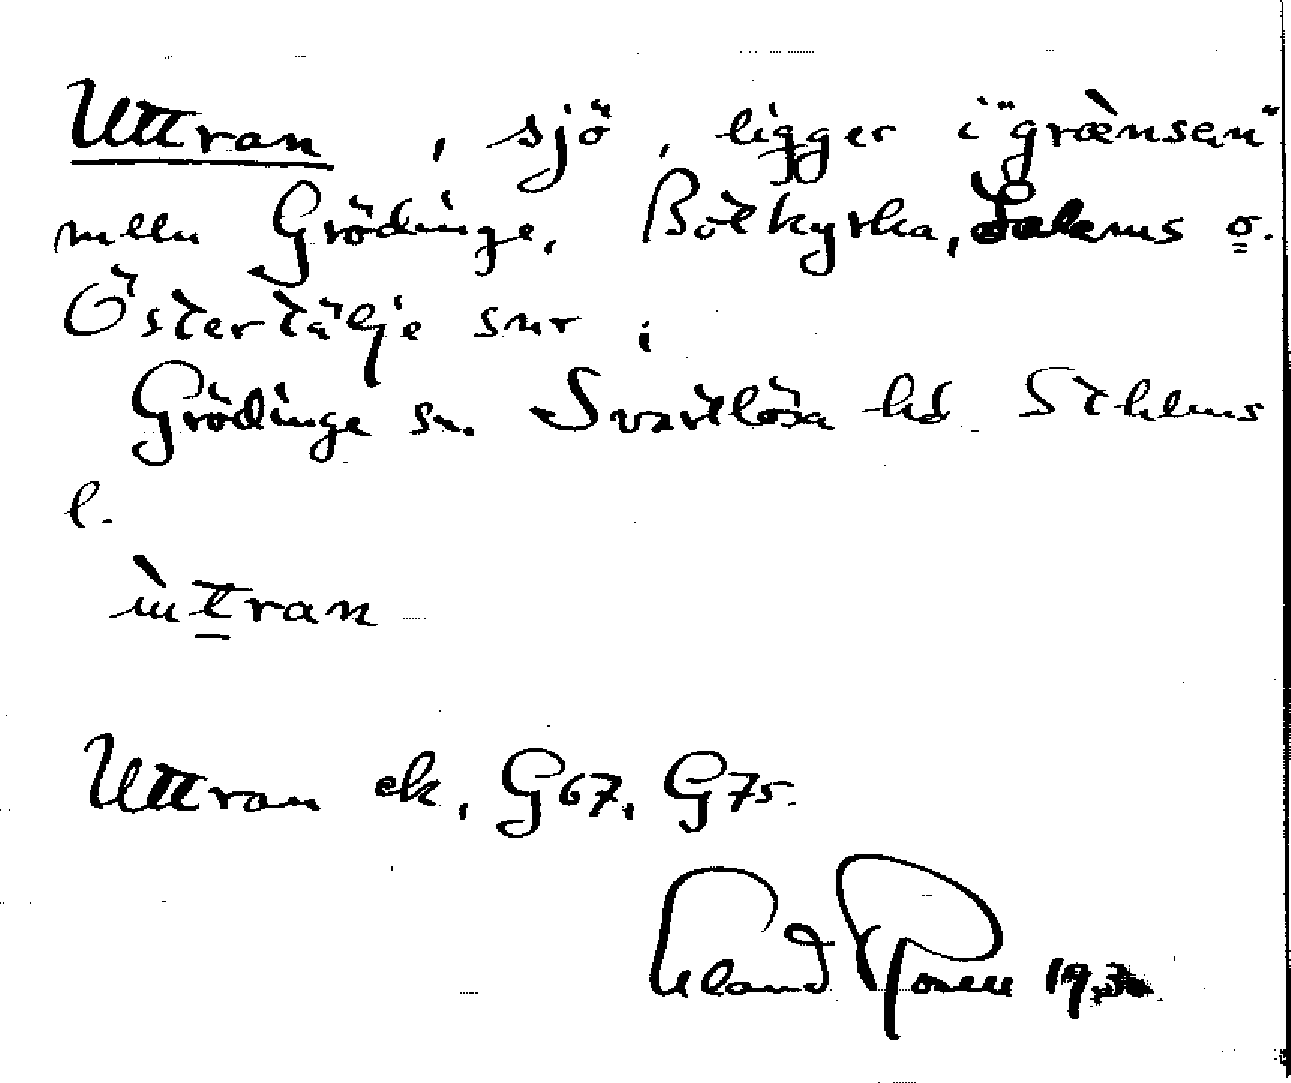 Uttran, sjö, ligger i "grænsen"
mellan Grödinge, Botkyrka, Salems o.
Östertälje snr i
Grödinge sn. Svartlösa hd. Sthlms
l.
ùttran
Uttran ek, G67, G75.
Erland Rosell 193